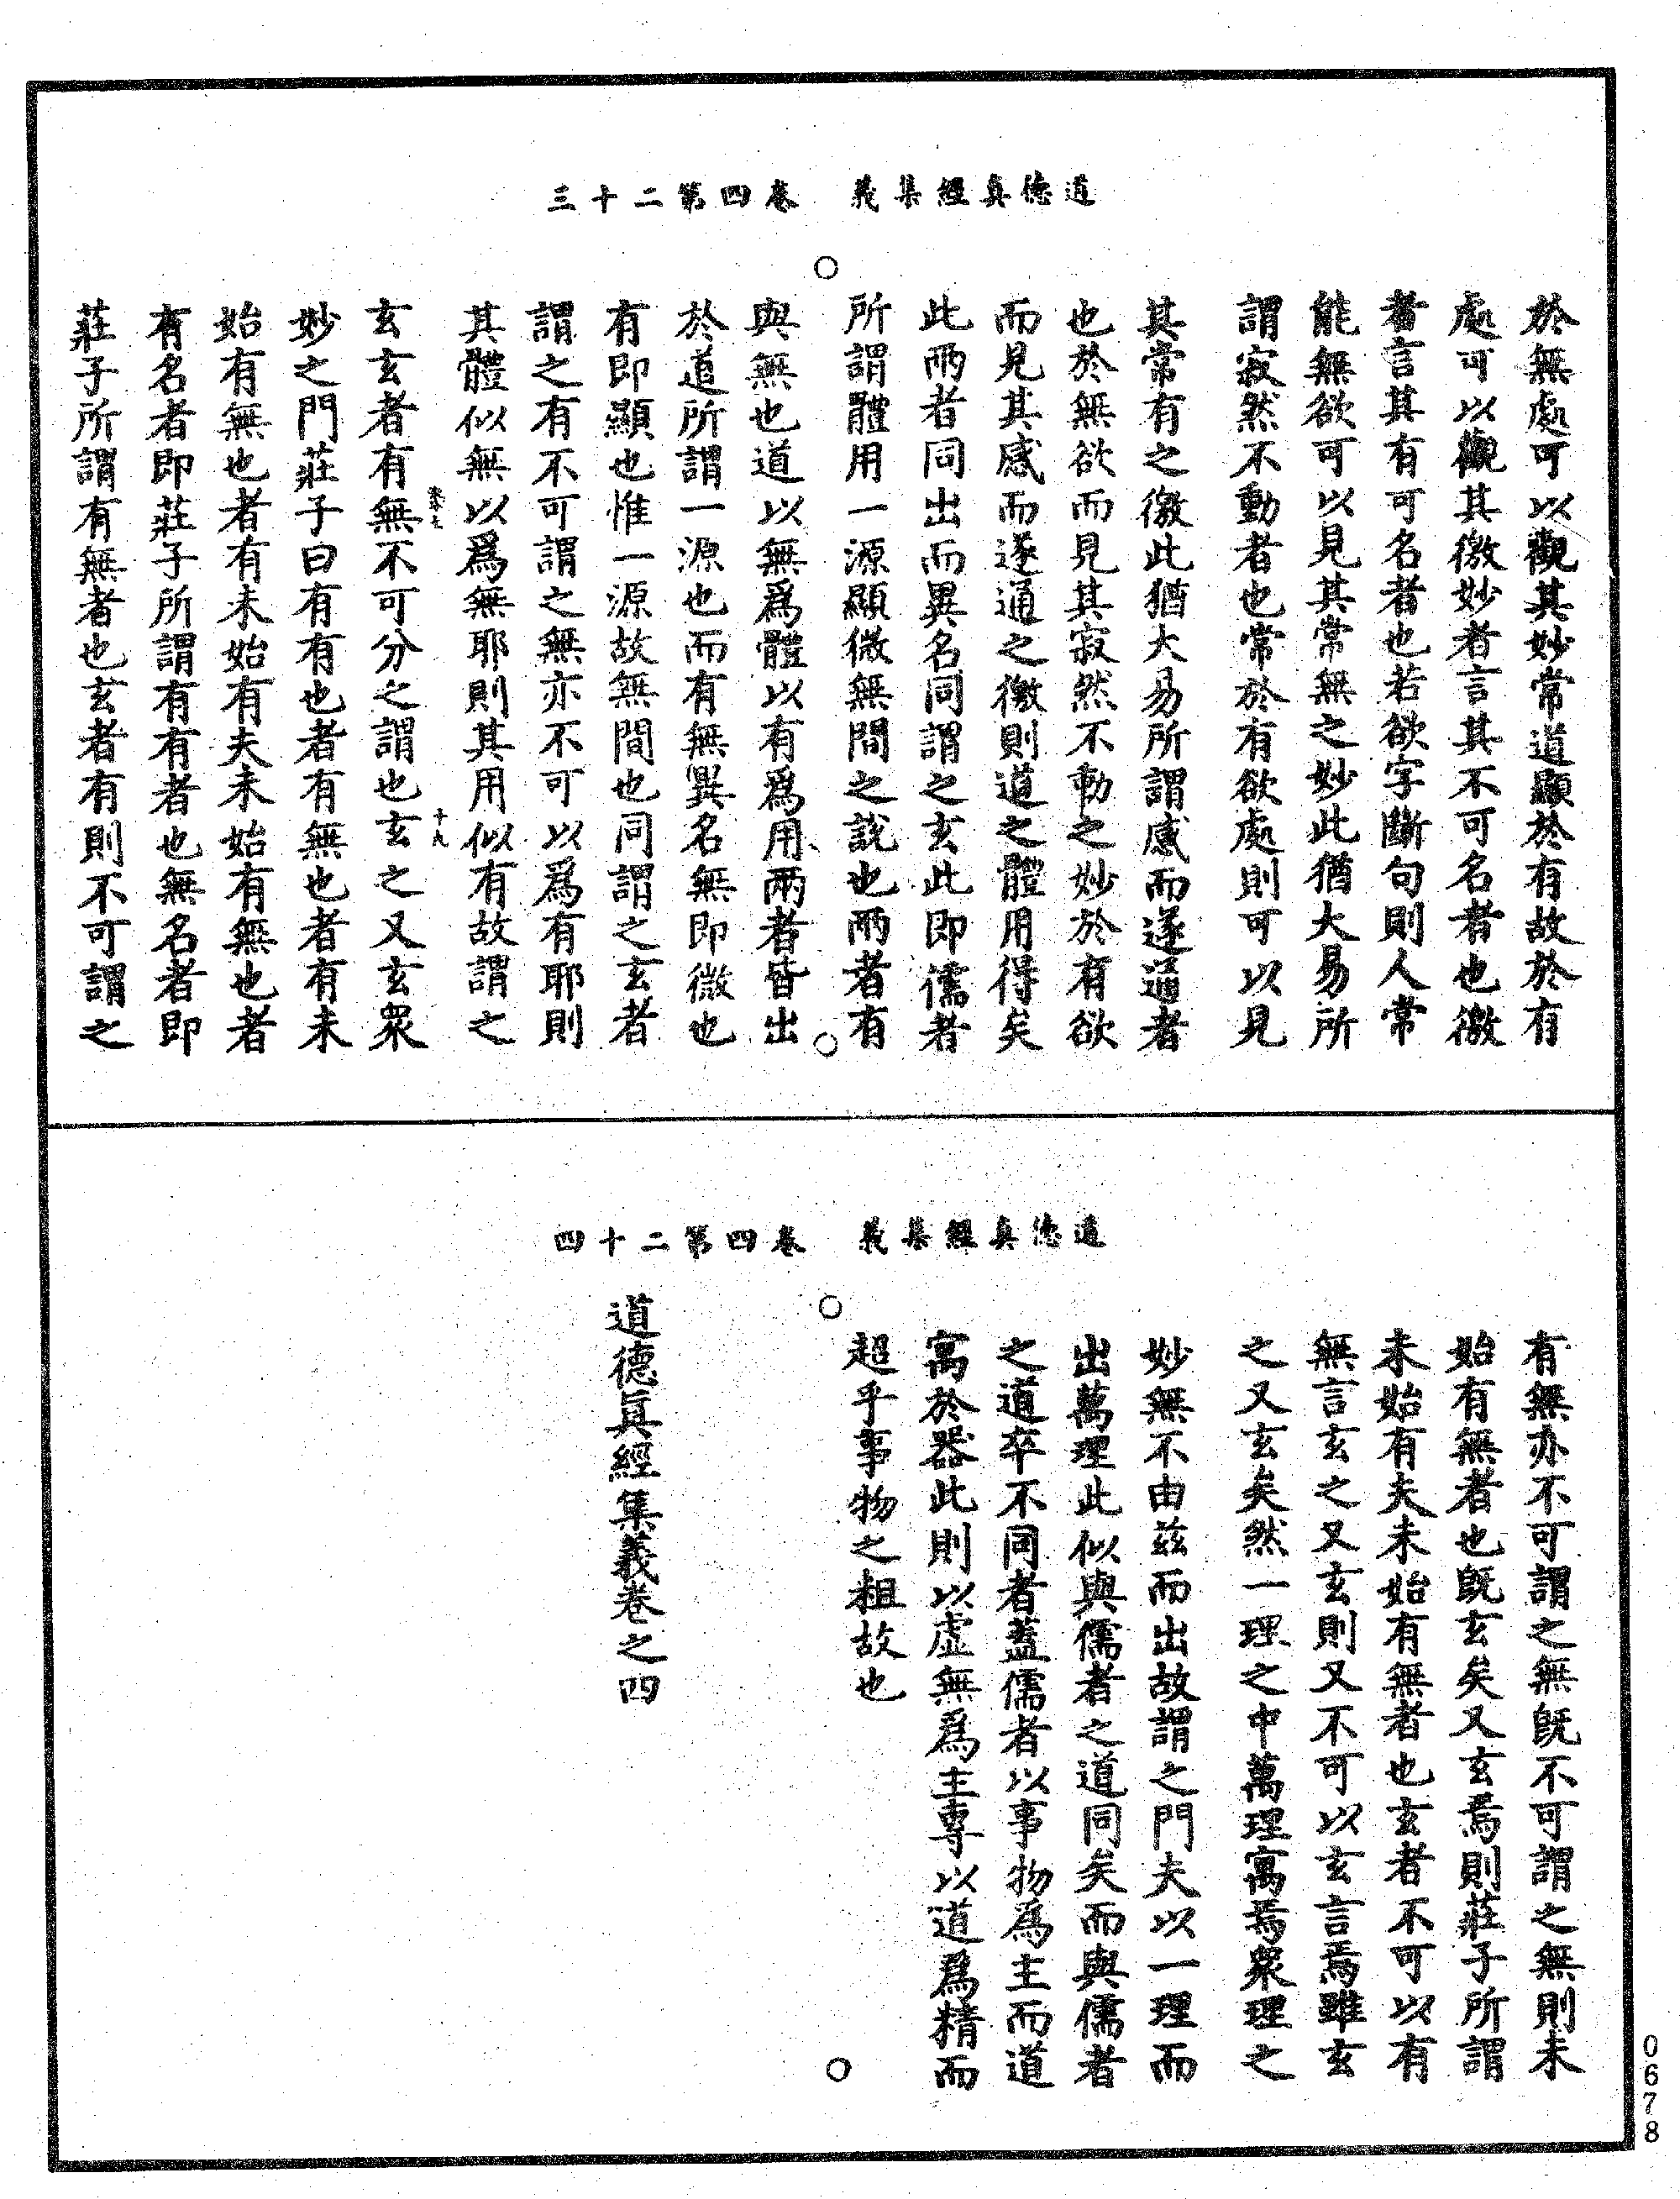 道德真經集義　卷四第二十三
於無處可以觀其妙常道顯於有故於有
處可以觀其徼妙者言其不可名者也徼
者言其有可名者也若欲字斷句則人常
能無欲可以見其常無之妙此猶大易所
謂寂然不動者也常於有欲處則可以見
其常有之徼此猶大易所謂感而遂通者
也於無欲而見其寂然不動之妙於有欲
而見其感而遂通之徼則道之體用得矣
此兩者同出而異名同謂之玄此即儒者
所謂體用一源顯微無間之說也兩者有
與無也道以無爲體以有爲用兩者皆出
於道所謂一源也而有無異名無即微也
有即顯也惟一源故無間也同謂之玄者
謂之有不可謂之無亦不可以爲有耶則
其體似無以爲無耶則其用似有故謂之
十九
玄玄者有無不可分之謂也玄之又玄衆
妙之門莊子曰有有也者有無也者有未
始有無也者有未始有夫未始有無也者
有名者即莊子所謂有有者也無名者即
莊子所謂有無者也玄者有則不可謂之
道德真經集義　卷四第二十四
有無亦不可謂之無旣不可謂之無則未
始有無者也旣玄矣又玄焉則莊子所謂
未始有夫未始有無者也玄者不可以有
無言玄之又玄則又不可以玄言焉雖玄
之又玄矣然一理之中萬理寓焉衆理之
妙無不由茲而出故謂之門夫以一理而
出萬理此似與儒者之道同矣而與儒者
之道卒不同者蓋儒者以事物爲主而道
寓於器此則以虛無爲主專以道爲精而
超乎事物之粗故也
道德眞經集義卷之四
0678